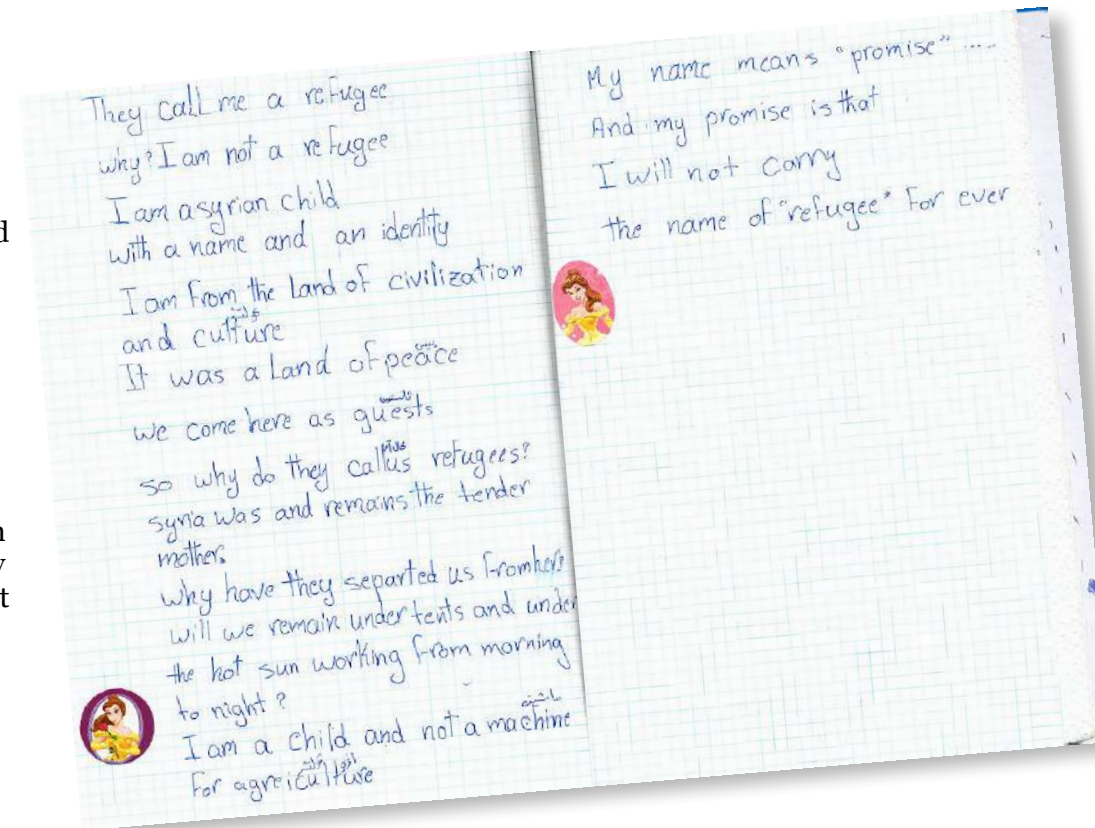 They call me a refugee
why? I am not a refugee
I am a syrian child
with a name and an identity
I am from the Land of civilization
and culture
It was a Land of peace
we come here as guests
so why do they call us refugees?
syria was and remains the tender
mother.
why have they separted us from her?
will we remain under tents and under
the hot sun working from morning
to night?
I am a child and not a machine
For agreiculture
My name means "promise" ....
And my promise is that
I will not carry
the name of "refugee" For ever